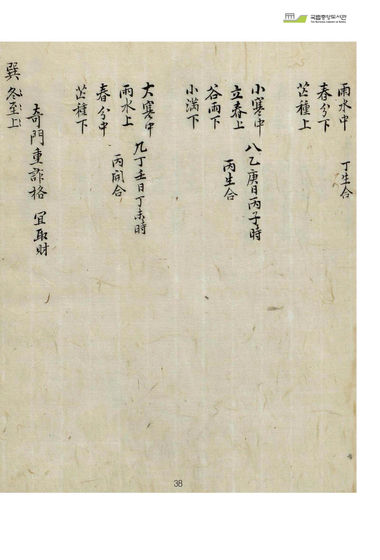 국립중앙도서관
雨水中 丁生合
春分下
芒種上
小寒中 八乙庚日丙子時
立春上 丙生合
谷雨下
小滿下
大寒中 九丁壬日丁未時
雨水上 丙開合
春分中
芒種下
奇門重詐格 宜取財
巽 冬至上
38